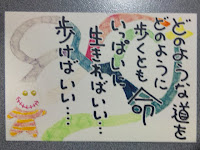 どのような道を
どのように
歩くとも
命
いっぱいに
生きればいい…
歩けばいい…